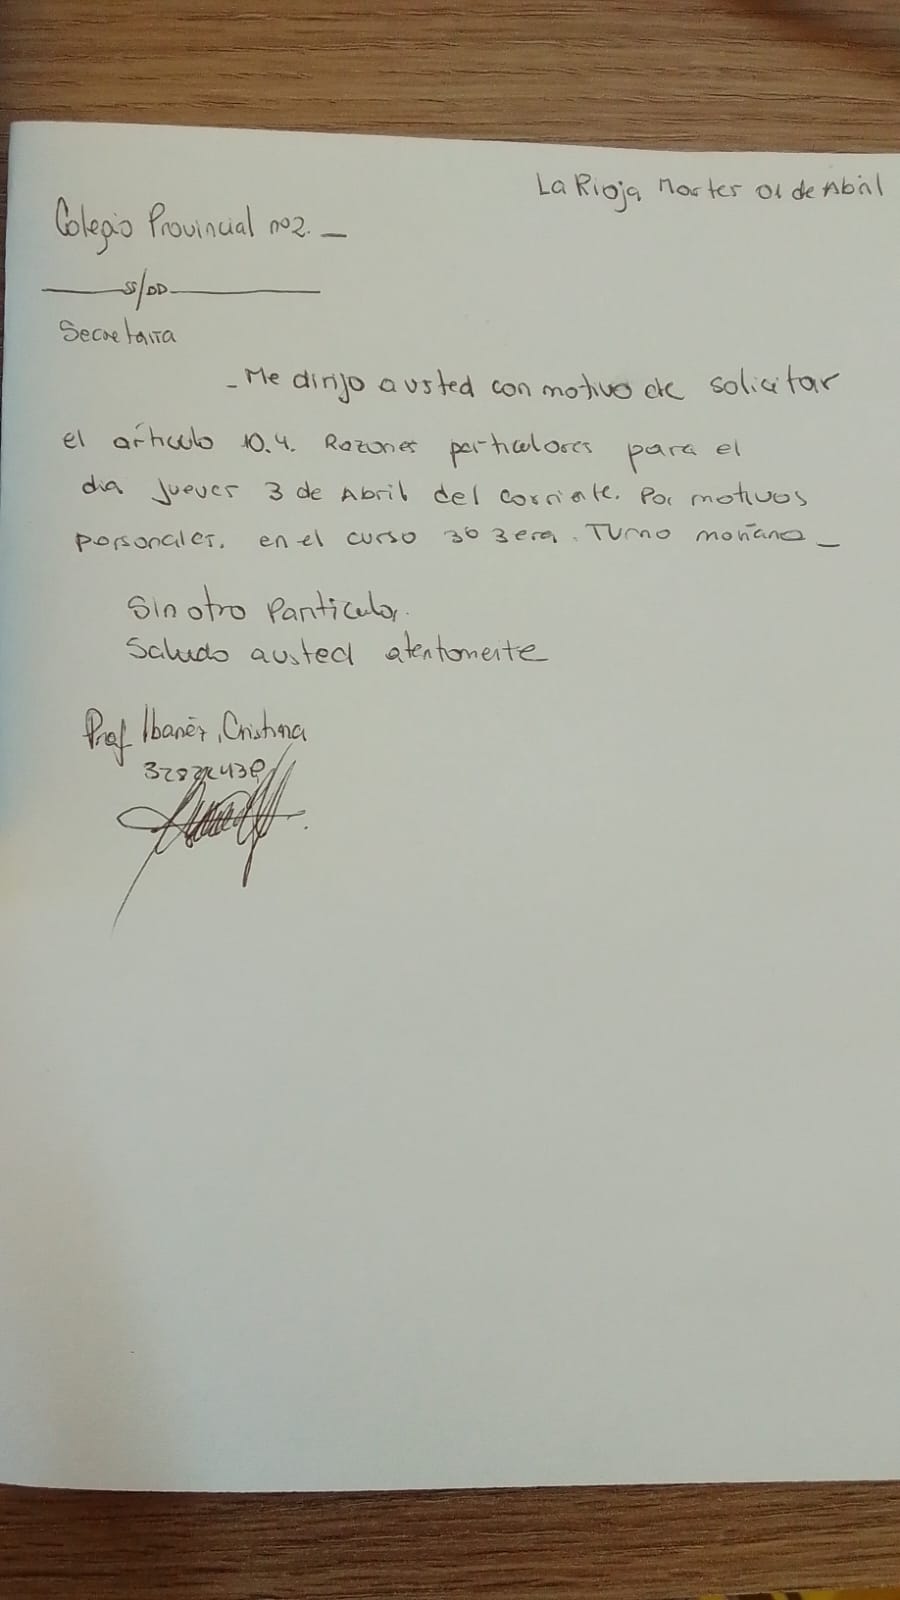 La Rioja Martes 01 de Abril
Colegio Provincial nº2. _
S/DD
Secretaria
_ Me dirijo a usted con motivo de solicitar
el artículo 10.4. Razones particulares para el
dia Jueves 3 de Abril del corriente. Por motivos
personales. en el curso 3º 3era. Turno mañana _
Sin otro Particular.
Saludo a usted atentamente
Prof Ibañez, Cristina